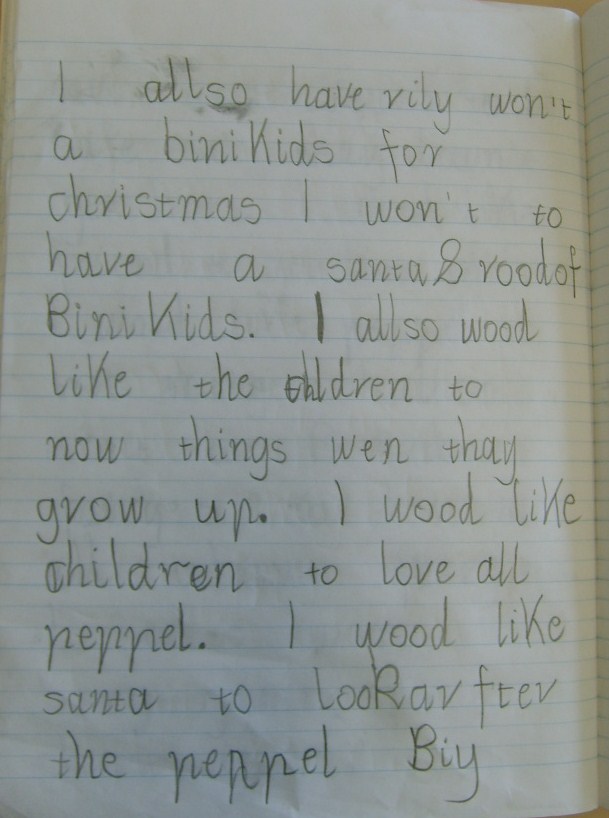 I allso have rily won't
a biniKids for
christmas I won't to
have a santa & roodof
Bini Kids. I allso wood
like the children to
now things wen thay
grow up. I wood like
children to love all
peppel. I wood like
santa to look ar fter
the peppel Biy